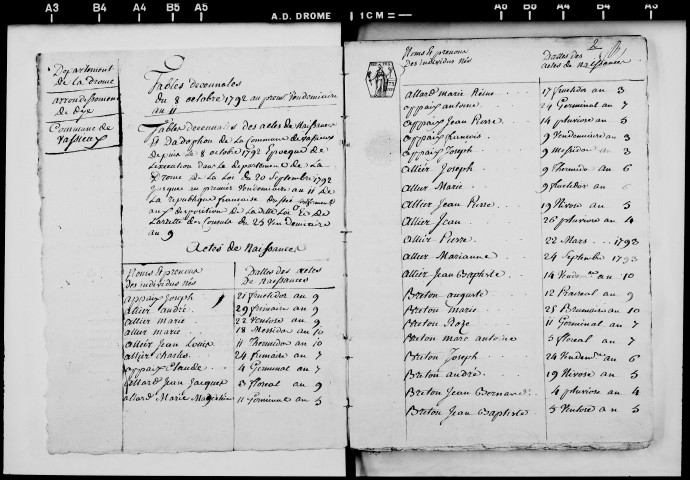 A3 B4 A4 B5 A5 A.D. DROME 1 CM A6 B5 A4 B4 A3
Departement
de la Drome
arrondissement
de Dye
Commune de
Vassieux
Tables decennales
du 8 octobre 1792 au premr Vendemiaire
an 11
Tables decennales des actes de Naissance
et dadophon de la Commune de Vassieux
depuis le 8 octobre 1792 Epoque de
Lexecution dans le Departement de la
Drome de la Loi du 20 Septembre 1792
jusques au premier Vendemiaire an 11 de
la republique francaise
aux disposition de la ditte Loi Et de
Larrette des Consuls du 25 Vendemiaire
an 9
Actes de Naissances
Noms & prenoms des individus nés
Dattes des actes de Naissances
appaix Joseph 21 fructidor an 9
allier andré 29 frimaire an 7
allier marie 22 Ventose an 9
allier marie 18 Messidor an 10
allier Jean Louis 11 Thermidor an 10
allier charles 24 frimaire an 7
appaix Claude 4 Germinal an 7
allard Jean Jacques 3 floreal an 9
allard Marie Magdelene 11 Germinal an 5
Noms & prenoms des individus nés
Dattes des actes de Naissances
2
allard marie Reine 17 fructidor an 3
appaix antoine 24 Germinal an 7
appaix Jean Pierre 14 pluviose an 5
appaix francois 9 Vendemiaire an 3
appaix Joseph 9 Messidor an 3
allier Joseph 9 thermidor an 6
allier Marie 9 fructidor an 6
allier Jean Pierre 19 Nivose an 5
allier Jean 26 pluviose an 4
allier Pierre 22 Mars 1793
allier Marianne 24 Septembre 1793
allier Jean Baptiste 14 Vendre an 10
Breton auguste 12 Prairial an 9
Breton marie 25 Brumaire an 10
Breton Roze 11 Germinal an 7
Breton marc antoine 5 floreal an 7
Breton Joseph 24 Vendemre an 6
Breton andré 19 Nivose an 5
Breton Jean Bernard 4 pluviose an 4
Breton Jean Baptiste 5 Ventose an 5